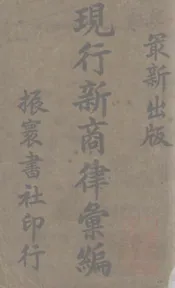 最新出版
現行新商律彙編
振寰書社印行